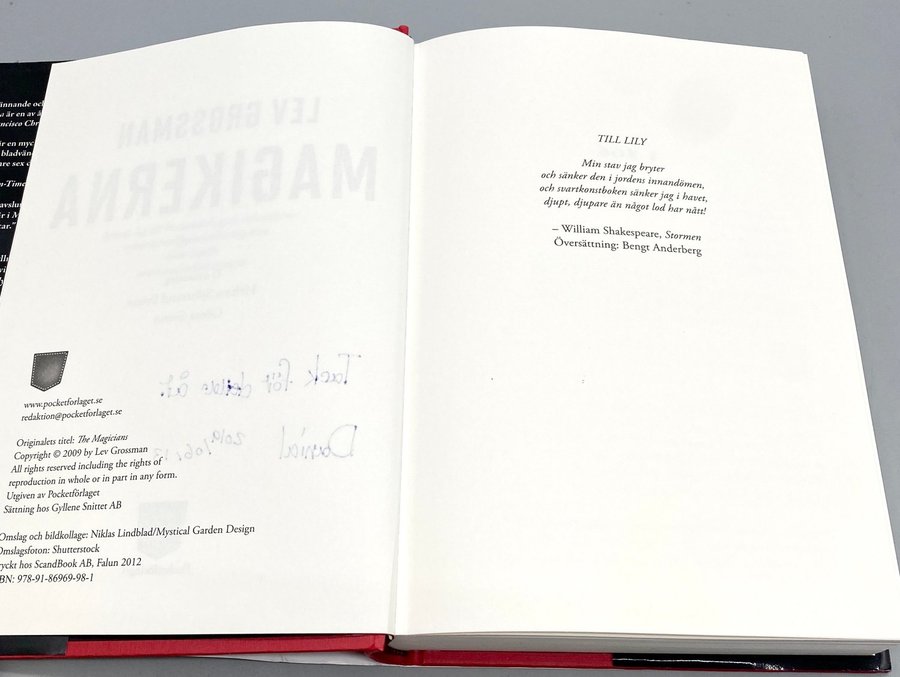 ännande oc
är en av å
ncisco Chr
är en myc
bladvän
are sex c
n-Time
avslu
ir i M
tar."
LEV GROSSMAN
MAGIKERNA
Tack för detta år.
Daniel 2019/06/13
www.pocketforlaget.se
redaktion@pocketforlaget.se
Originalets titel: The Magicians
Copyright © 2009 by Lev Grossman
All rights reserved including the rights of
reproduction in whole or in part in any form.
Utgiven av Pocketförlaget
Sättning hos Gyllene Snittet AB
Omslag och bildkollage: Niklas Lindblad/Mystical Garden Design
Omslagsfoton: Shutterstock
ryckt hos ScandBook AB, Falun 2012
BN: 978-91-86969-98-1
TILL LILY
Min stav jag bryter
och sänker den i jordens innandömen,
och svartkonstboken sänker jag i havet,
djupt, djupare än något lod har nått!
– William Shakespeare, Stormen
Översättning: Bengt Anderberg